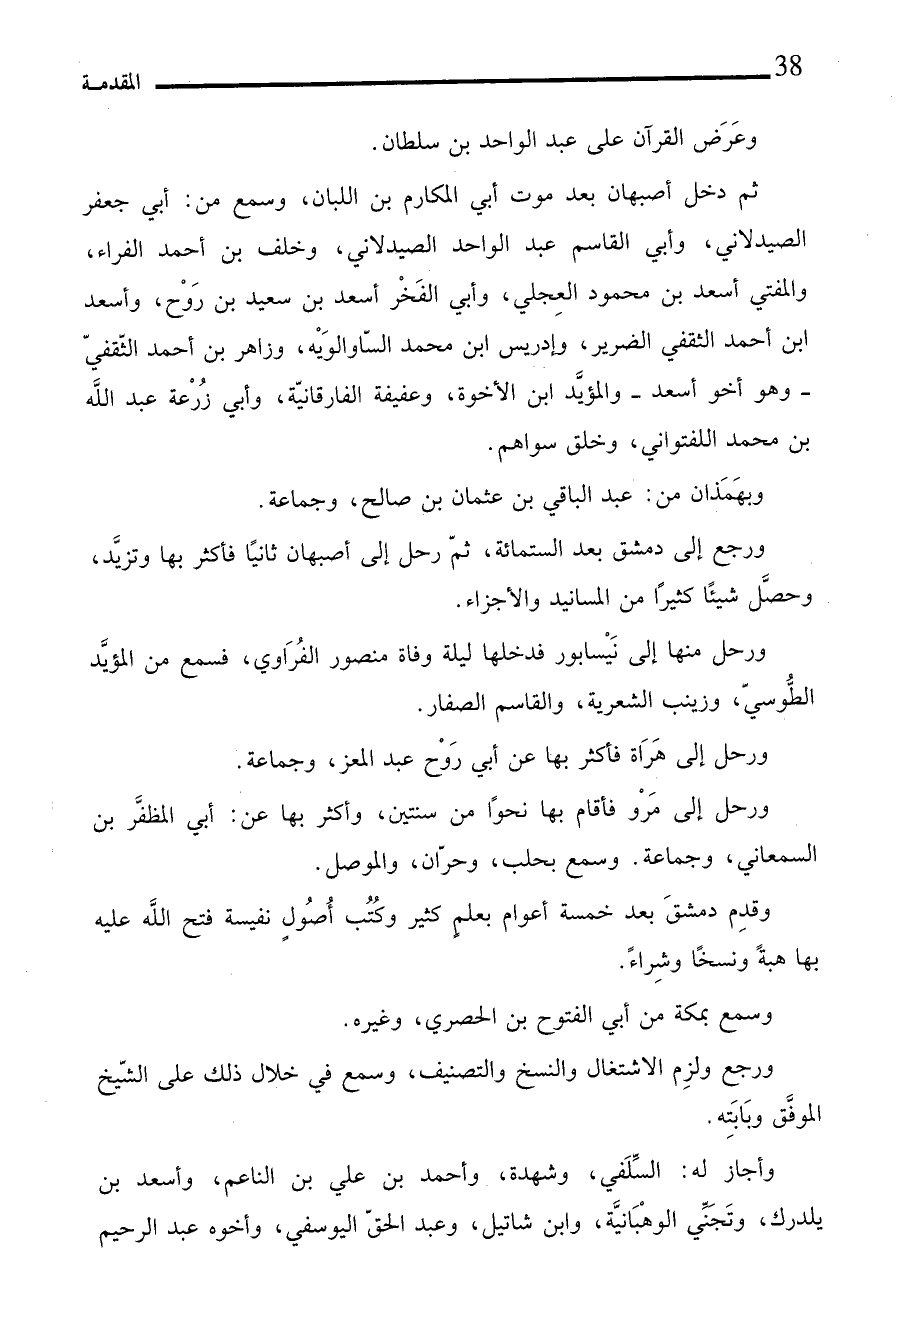 38 المقدمـة
وعَرَض القرآن على عبد الواحد بن سلطان.
ثم دخل أصبهان بعد موت أبي المكارم بن اللبان، وسمع من: أبي جعفر
الصيدلاني، وأبي القاسم عبد الواحد الصيدلاني، وخلف بن أحمد الفراء،
والمفتي أسعد بن محمود العِجلي، وأبي الفَخْر أسعد بن سعيد بن رَوْح، وأسعد
ابن أحمد الثقفي الضرير، وإدريس ابن محمد السّاوالوَيْه، وزاهر بن أحمد الثّقفيّ
ـ وهو أخو أسعد ـ والمؤيَّد ابن الأخوة، وعفيفة الفارقانيّة، وأبي زُرْعة عبد اللَّه
بن محمد اللفتواني، وخلق سواهم.
وبهَمَذان من: عبد الباقي بن عثمان بن صالح، وجماعة.
ورجع إلى دمشق بعد الستمائة، ثمّ رحل إلى أصبهان ثانيًا فأكثر بها وتزيَّد،
وحصَّل شيئًا كثيرًا من المسانيد والأجزاء.
ورحل منها إلى نَيْسابور فدخلها ليلة وفاة منصور الفُرَاوي، فسمع من المؤيَّد
الطُّوسيّ، وزينب الشعرية، والقاسم الصفار.
ورحل إلى هَرَاة فأكثر بها عن أبي رَوْح عبد المعز، وجماعة.
ورحل إلى مَرْو فأقام بها نحوًا من سنتين، وأكثر بها عن: أبي المظفَّر بن
السمعاني، وجماعة. وسمع بحلب، وحرّان، والموصل.
وقدِم دمشقَ بعد خمسة أعوام بعلمٍ كثير وكُتُب أُصُولٍ نفيسة فتح اللَّه عليه
بها هبةً ونسخًا وشِراءً.
وسمع بمكة من أبي الفتوح بن الحصري، وغيره.
ورجع ولزِم الاشتغال والنسخ والتصنيف، وسمع في خلال ذلك على الشّيخ
الموفَّق وبَابَتِه.
وأجاز له: السِّلَفي، وشهدة، وأحمد بن علي بن الناعم، وأسعد بن
يلدرك، وتَجَنِّي الوهْبَانيَّة، وابن شاتيل، وعبد الحقّ اليوسفي، وأخوه عبد الرحيم